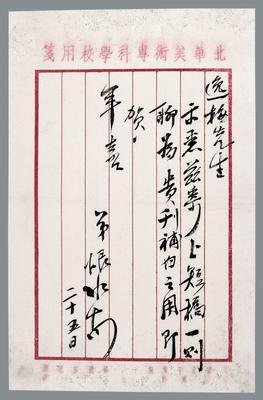 北華美術專科學校用箋
逸梅先生
示悉茲奉上短稿一則
聊為貴刊補白之用即
賀
年喜
弟恨水頓
二十五日